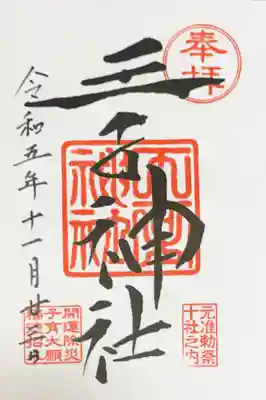 奉拝
元准勅祭
十社之内
王子神社
王子
神社
令和五年十一月廿三日
開運除災
子育大願